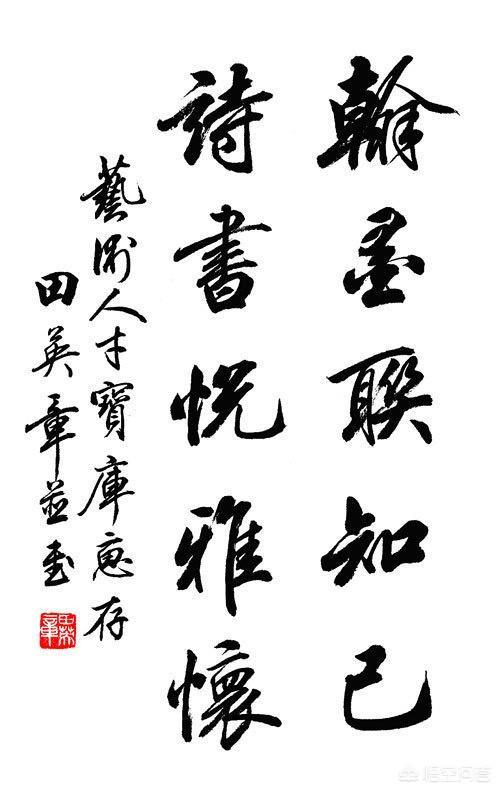 翰墨聯知己
詩書悦雅懷
藝術人才寶庫惠存
田英章並書
田英章
悟空问答